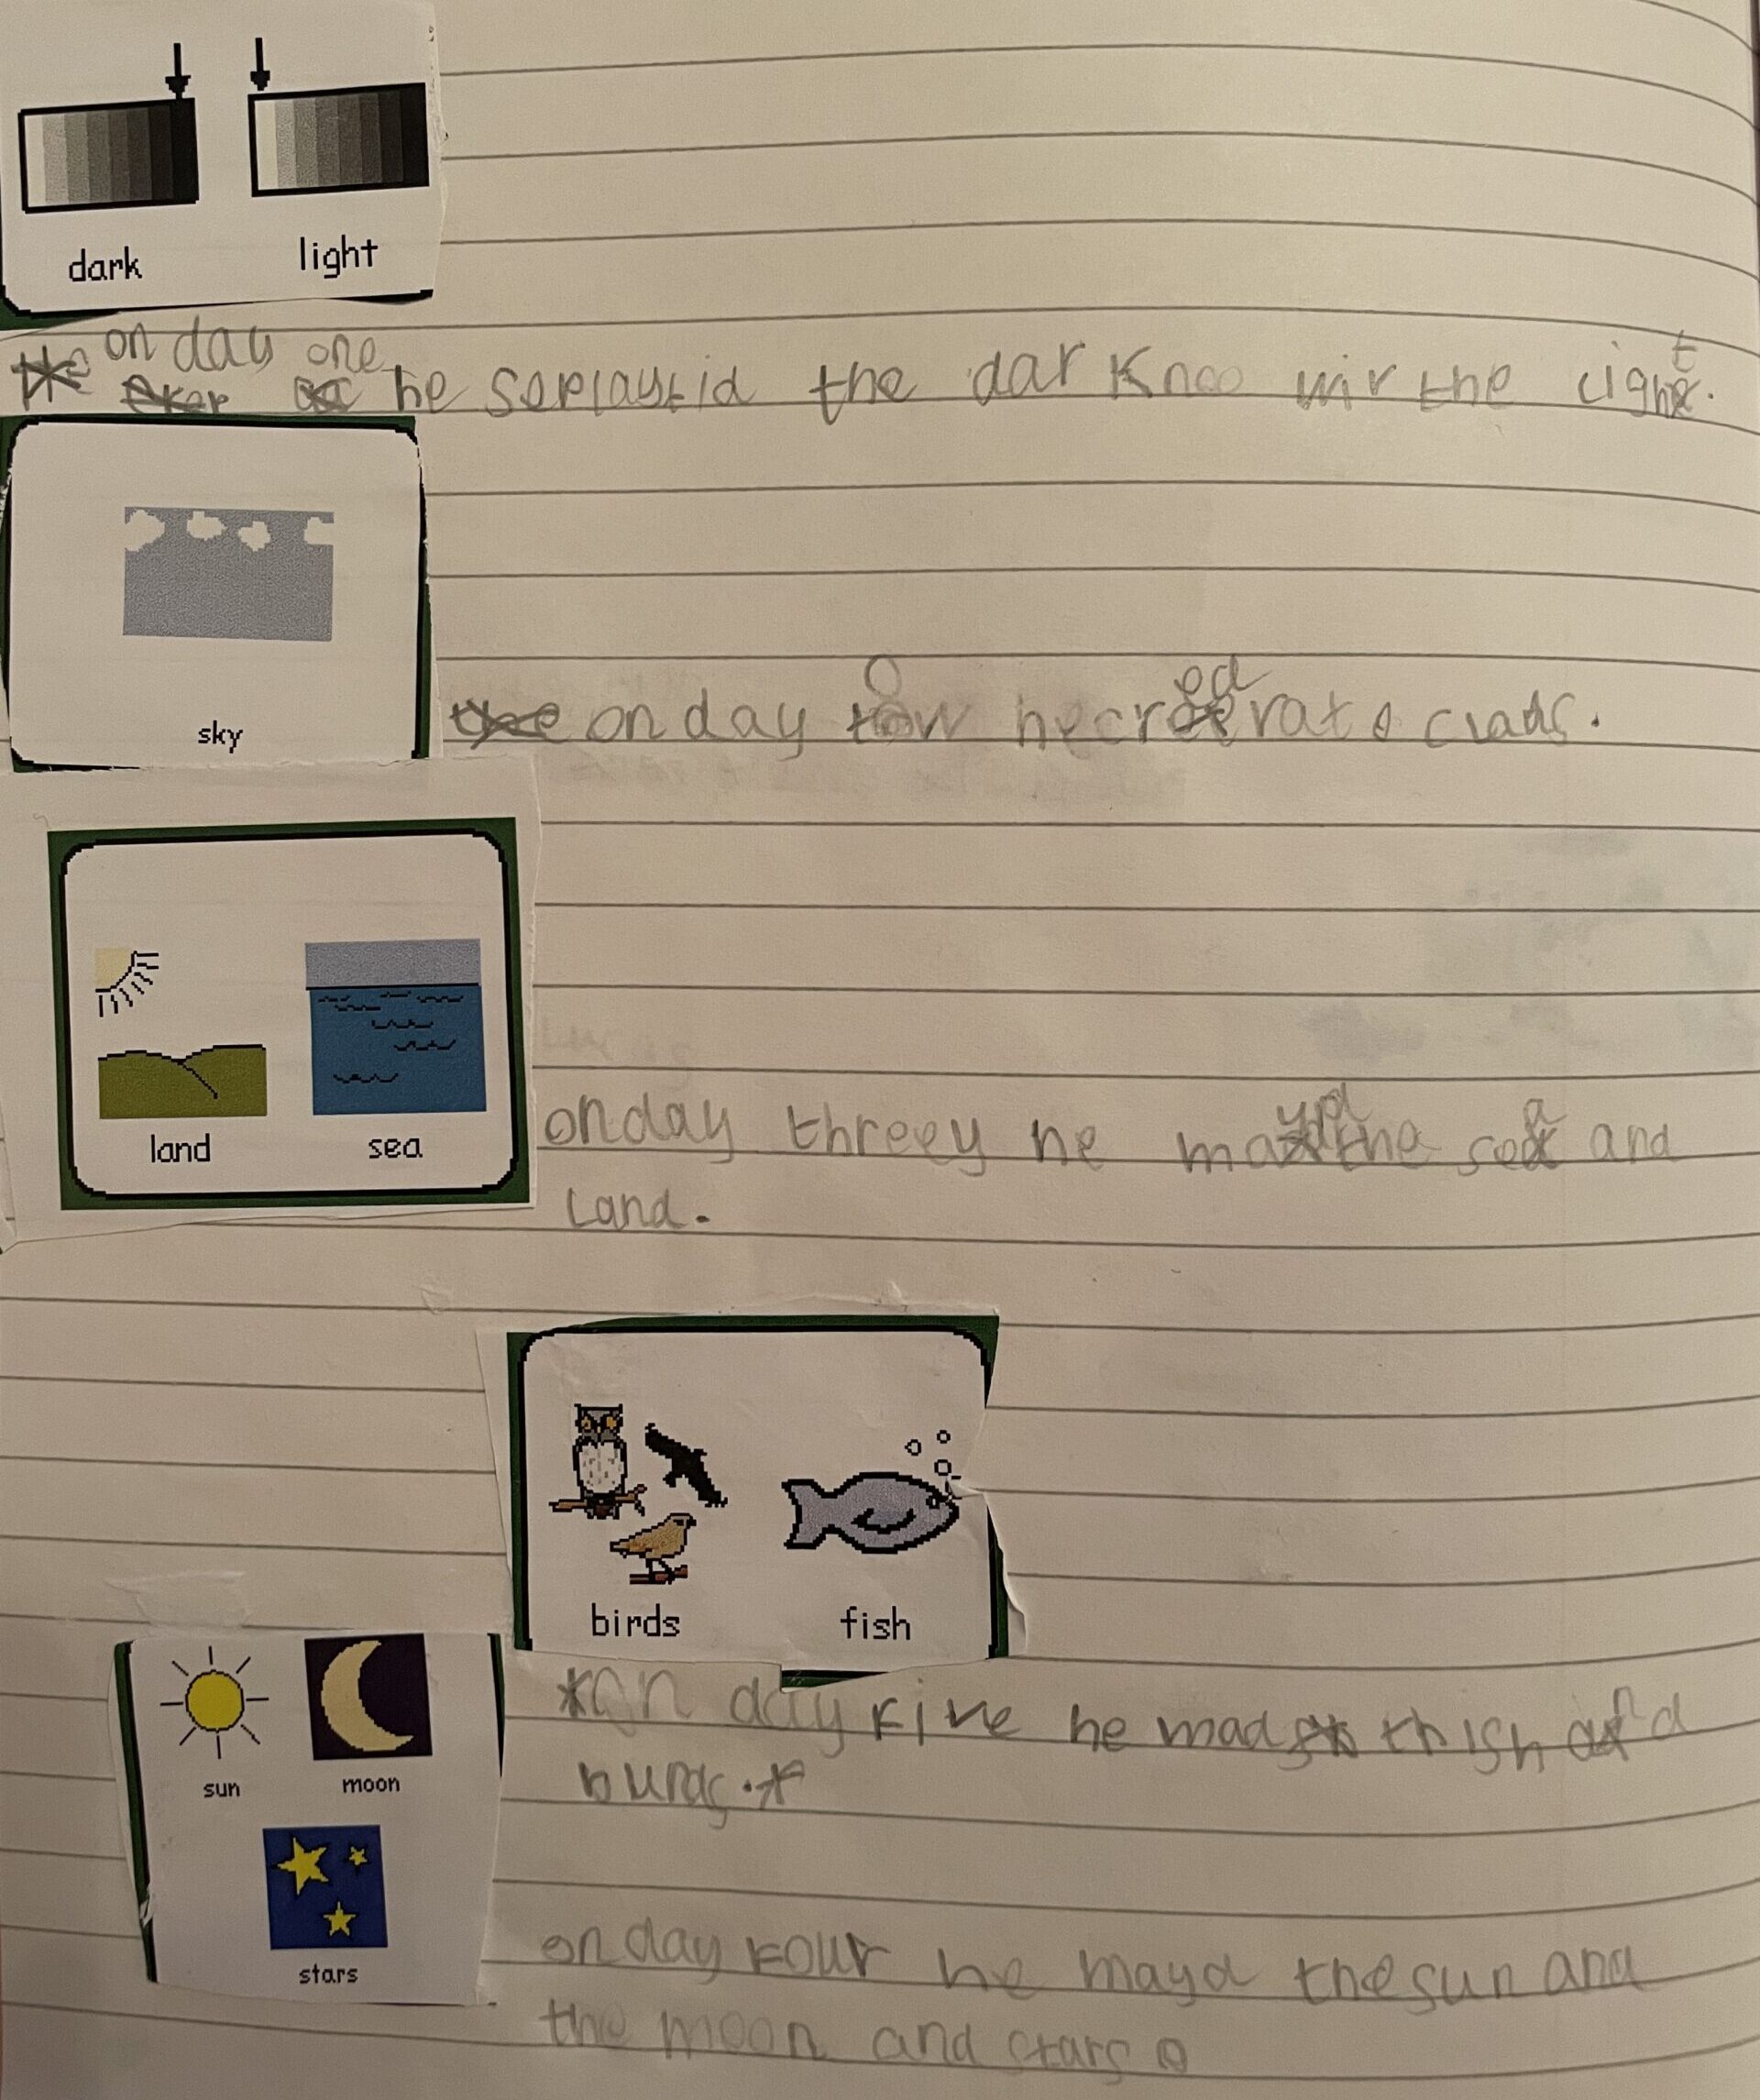 dark light
on day one
he seplaystid the darknoo mir the light.
sky
on day tow he crated clads.
land sea
on day threey he mayd the sea and
land.
birds fish
sun moon
*on day five he mad fhish and
burds.*
stars
on day four he mayd the sun and
the moon and stars.